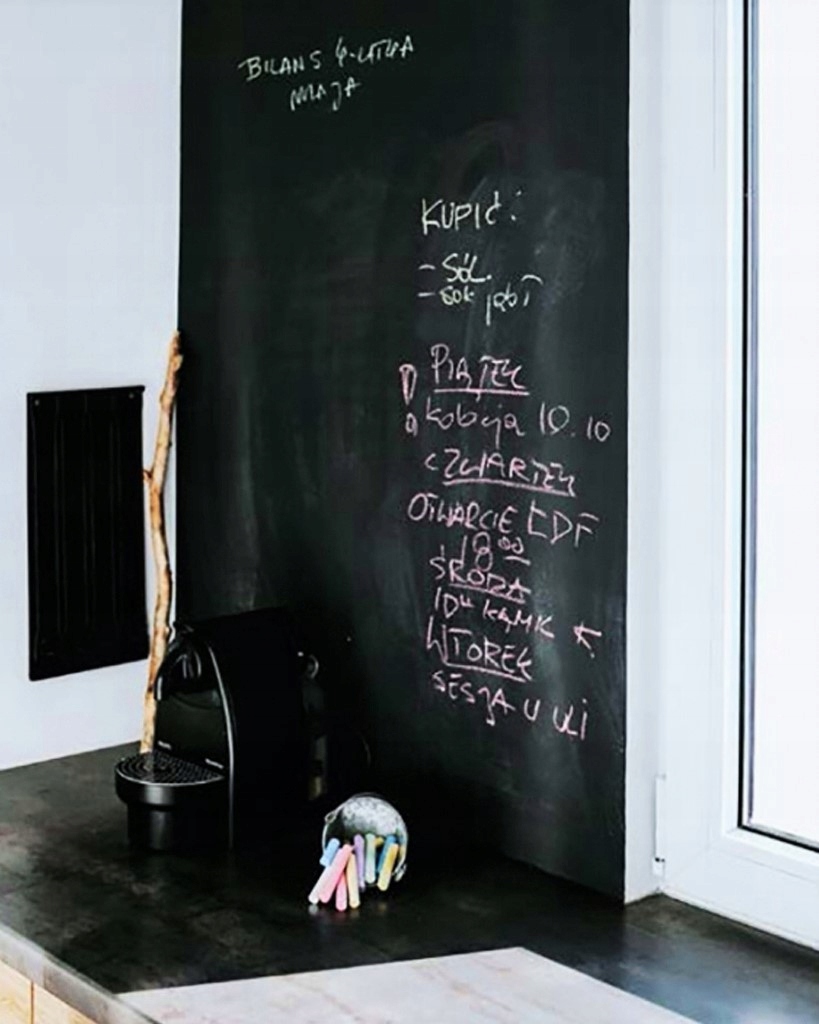 BILANS 4-LATKA
MAJA
KUPIĆ:
- SÓL.
- sok jabł
! PIĄTEK
kolacja 19.10
CZWARTEK
OTWARCIE ŁDF
18 00
ŚRODA
WTOREK
SESJA U ULI